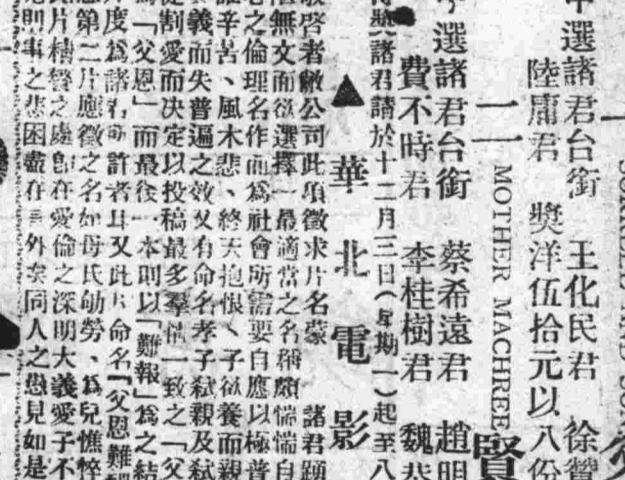 中選諸君台銜 王化民君 徐鶯
陸庸君 奬洋伍拾元以八份
二 MOTHER MACHREE 賢
選諸君台銜 蔡希遠君 趙明
費不時君 李桂樹君 魏恭
諸君請於十二月三日(星期一)起至八
▲華北電影
敬啓者敝公司此項徵求片名蒙 諸君踴
無文而欲選擇一最適當之名稱頗惴惴自
之倫理名作而爲社會所需要自應以極普
辛苦、風木悲、終天抱恨、子欲養而親
義而失普遍之效又有命名孝子弒親及弒
割愛而决定以投稿最多羣情一致之「父
「父恩」而最後一本則以「難報」爲之結
度爲諸君所許者且又此片命名「父恩難
第二片應徵之名如母氏劬勞、爲兒憔悴
片精警之處即在愛倫之深明大義愛子不
則事之悲困盡在言外矣同人之愚見如是